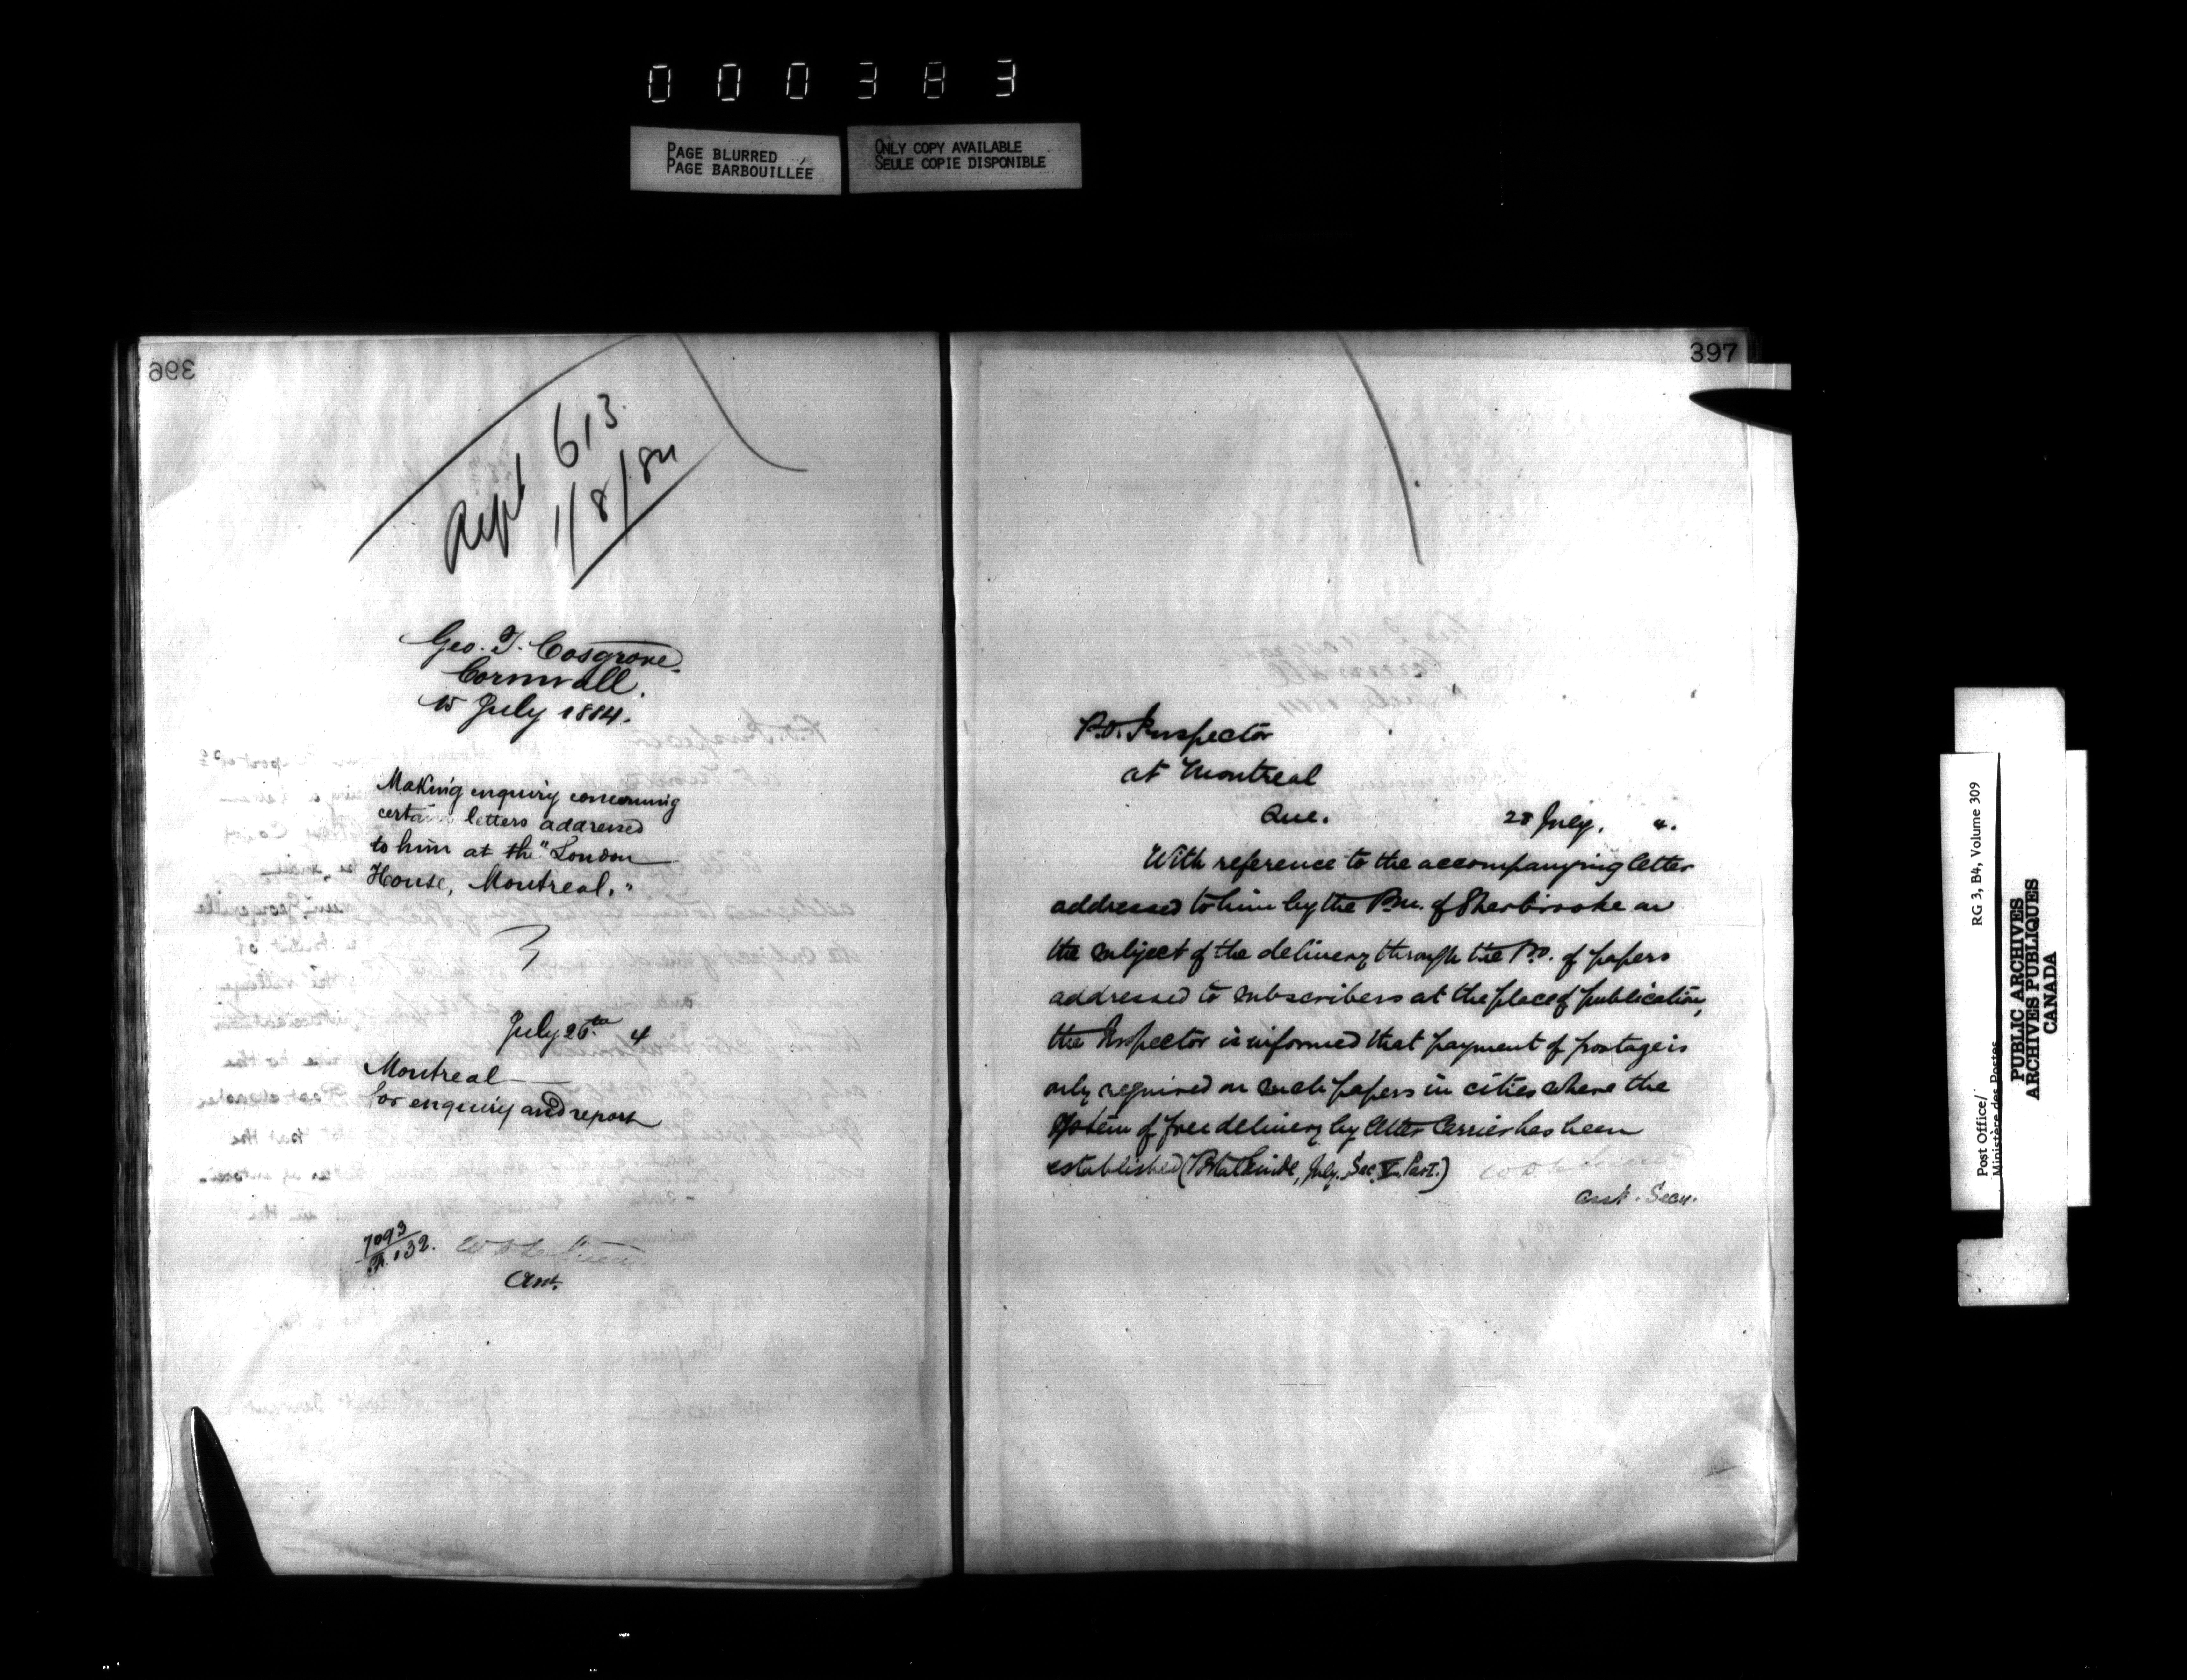 000383
PAGE BLURRED
PAGE BARBOUILLÉE
ONLY COPY AVAILABLE
SEULE COPIE DISPONIBLE
396
Rept 613
1/8/84
Geo. T. Cosgrove
Cornwall.
15 July 1884.
Making enquiry concerning
certain letters addressed
to him at the "London
House, Montreal."
July 26th 4
Montreal
For enquiry and report
7093
132.
Asst.
397
P.O. Inspector
at Montreal
Que. 28 July, 4.
With reference to the accompanying letter
addressed to him by the P.M. of Sherbrooke on
the subject of the delivery through the P.O. of papers
addressed to subscribers at the place of publication,
the Inspector is informed that payment of postage is
only required on such papers in cities where the
system of free delivery by letter Carrier has been
established (Postal Guide, July. Sec. V. Part I.)
Asst. Secy.
Post Office/
Ministère des Postes
RG 3, B4, Volume 309
PUBLIC ARCHIVES
ARCHIVES PUBLIQUES
CANADA